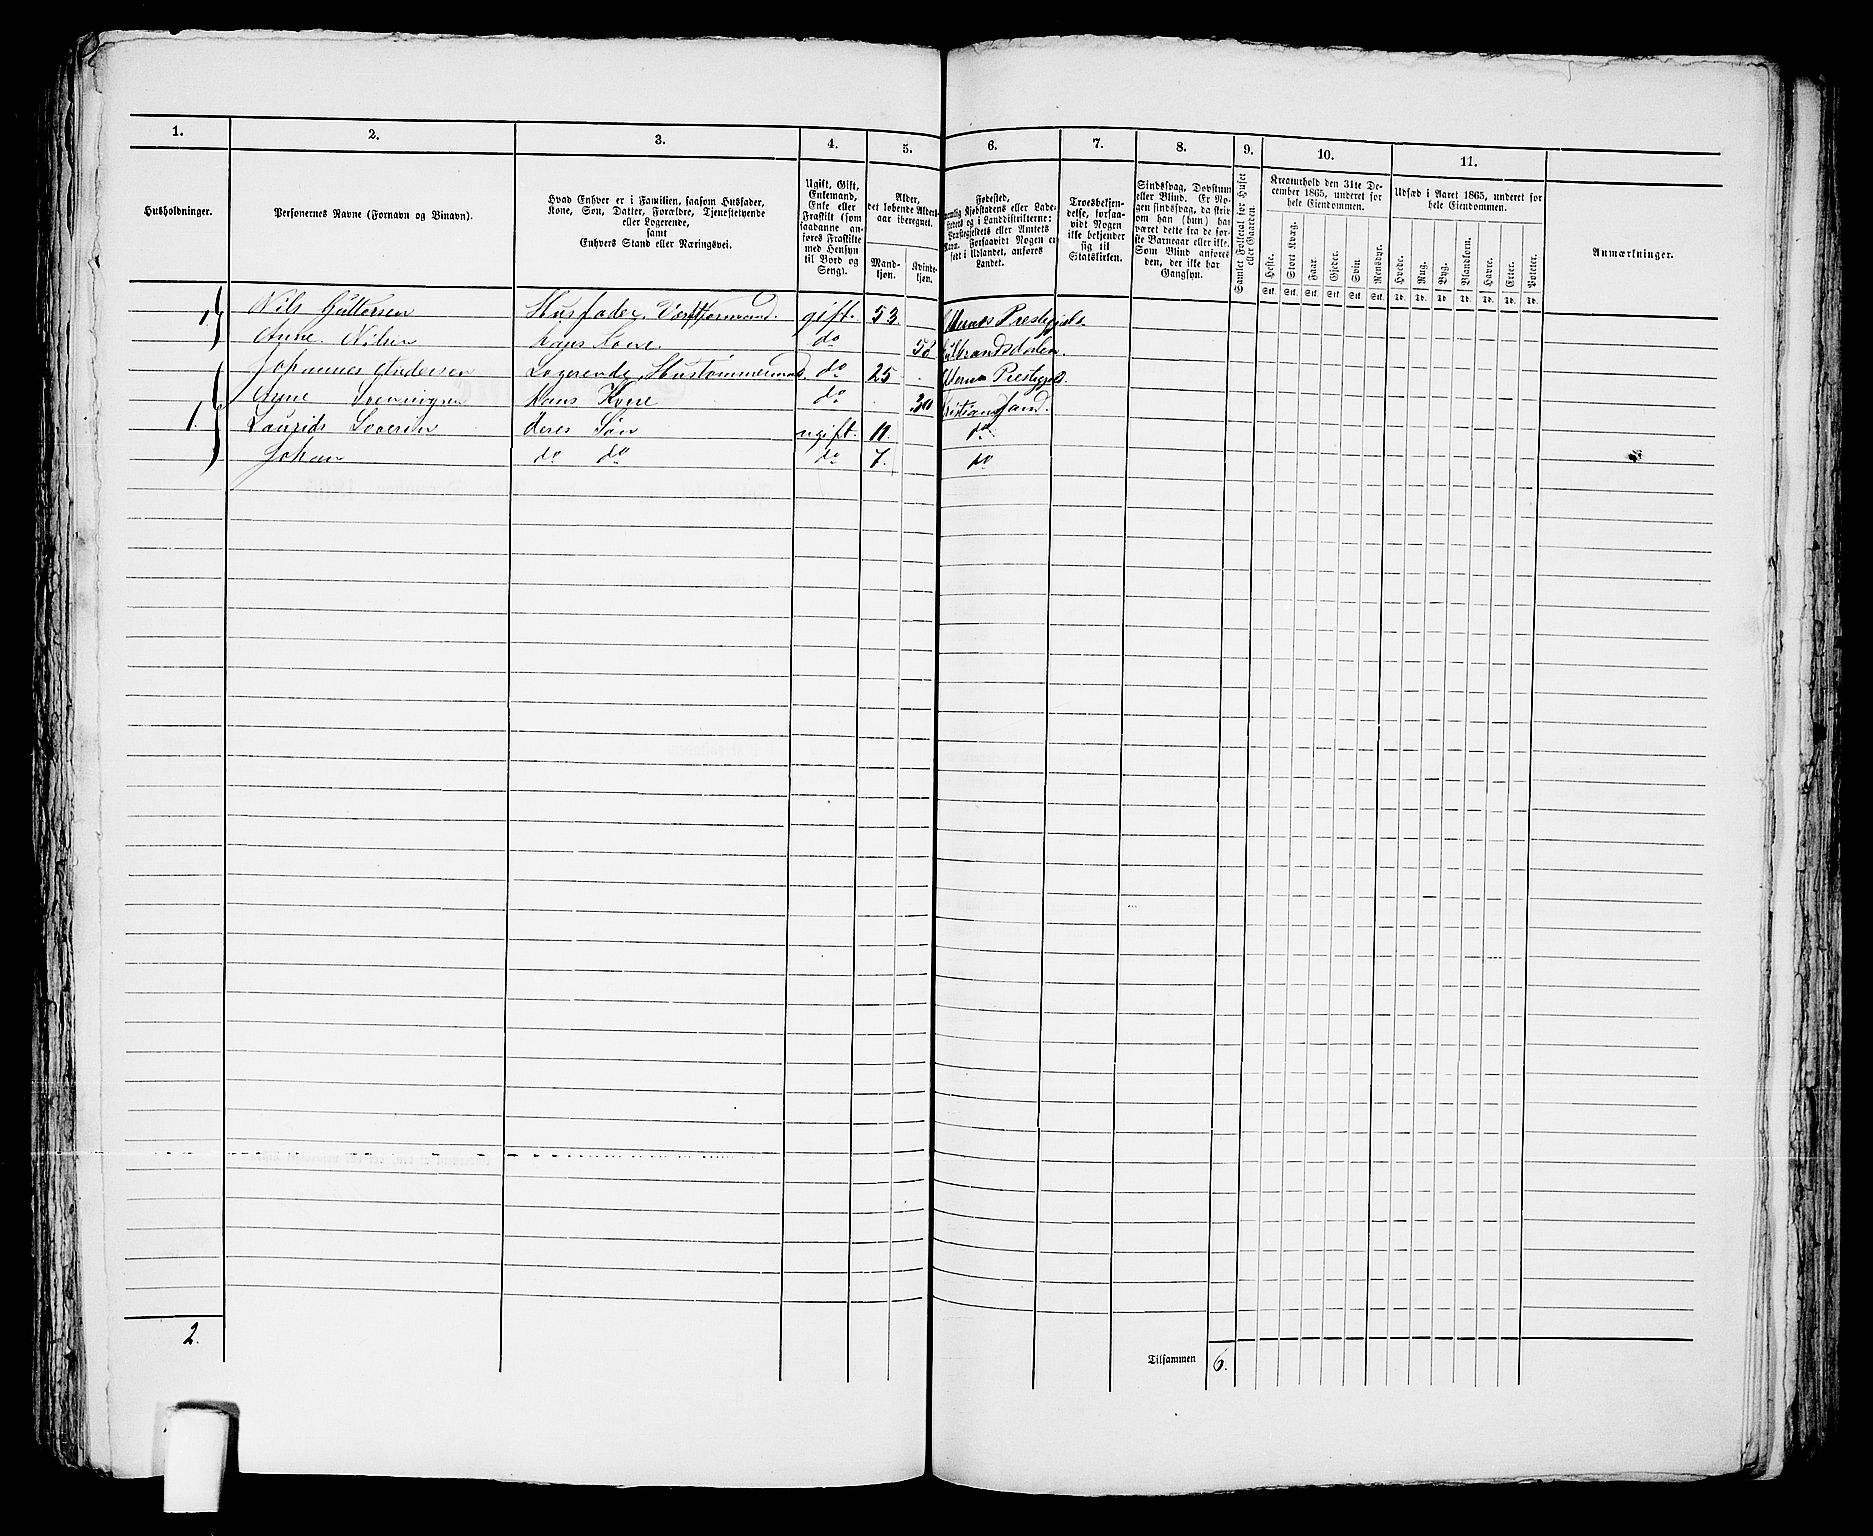 1. 2. 3. 4. 5. 6. 7. 8. 9. 10. 11.
Husholdninger.
Personernes Navne (Fornavn og Binavn).
Hvad Enhver er i Familien, saasom Husfader,
Kone, Søn, Datter, Forældre, Tjenestetyende
eller Logerende,
samt
Enhvers Stand eller Næringsvei.
Ugift, Gift,
Enkemand,
Enke eller
Fraskilt (som
saadanne an-
føres Fraskilte
med Hensyn
til Bord og
Seng).
Alder,
det løbende Alders-
aar iberegnet.
Mand-
kjøn.
Kvinde-
kjøn.
Fødested,
Landet.
Troesbekjen-
delse, forsaa-
vidt Nogen
ikke bekjender
sig til
Statskirken.
Sindssvag, Døvstum
eller Blind. Er No-
gen sindssvag, da skri-
ves om han (hun) har
været dette fra de før-
ste Barneaar eller ikke.
Som Blind anføres
den, der ikke har
Gangsyn.
Samlet Folketal for Huset
eller Gaarden.
Kreaturhold den 31te De-
cember 1865, underet for
hele Eiendommen.
Heste. Stort Kvæg. Faar. Gjeder. Svin. Rensdyr.
Stk. Stk. Stk. Stk. Stk. Stk.
Udsæd i Aaret 1865, underet for
hele Eiendommen.
Hvede. Rug. Byg. Blandkorn. Havre. Erter. Poteter.
Td. Td. Td. Td. Td. Td. Td.
Anmærkninger.
1. Nils Husfader, gift. 53.
Anne Nilsen Hans Kone. do 58
Johannes Andersen Logerende, Hustømmermand. do 25
1. Anne Hans Kone do 30
Laurids deres Søn ugift. 11. do
Johan do do do 7. do
2.
Tilsammen 6.